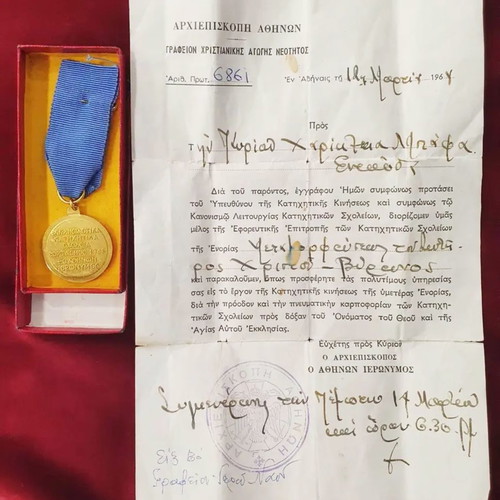 ΑΡΧΙΕΠΙΣΚΟΠΗ ΑΘΗΝΩΝ
ΓΡΑΦΕΙΟΝ ΧΡΙΣΤΙΑΝΙΚΗΣ ΑΓΩΓΗΣ ΝΕΟΤΗΤΟΣ
Ἀριθ. Πρωτ. 6861 Ἐν Ἀθήναις τῇ Μαρτίου 196
Πρὸς
τὴν Κυρίαν Χαρίκλεια
Ἐνταῦθα
Διὰ τοῦ παρόντος, ἐγγράφου Ἡμῶν συμφώνως προτάσει
τοῦ Ὑπευθύνου τῆς Κατηχητικῆς Κινήσεως καὶ συμφώνως τῷ
Κανονισμῷ Λειτουργίας Κατηχητικῶν Σχολείων, διορίζομεν ὑμᾶς
μέλος τῆς Ἐφορευτικῆς Ἐπιτροπῆς τῶν Κατηχητικῶν Σχολείων
τῆς Ἐνορίας Μεταμορφώσεως τοῦ Σωτῆ-
ρος Χριστοῦ - Βύρωνος
καὶ παρακαλοῦμεν, ὅπως προσφέρητε τὰς πολυτίμους ὑπηρεσίας
σας εἰς τὸ ἔργον τῆς Κατηχητικῆς κινήσεως τῆς ὑμετέρας Ἐνορίας,
διὰ τὴν πρόοδον καὶ τὴν πνευματικὴν καρποφορίαν τῶν Κατηχη-
τικῶν Σχολείων πρὸς δόξαν τοῦ Ὀνόματος τοῦ Θεοῦ καὶ τῆς
Ἁγίας Αὐτοῦ Ἐκκλησίας.
Εὐχέτης πρὸς Κύριον
Ο ΑΡΧΙΕΠΙΣΚΟΠΟΣ
Ο ΑΘΗΝΩΝ ΙΕΡΩΝΥΜΟΣ
τὴν Πέμπτην 14 Μαρτίου
καὶ ὥραν 6.30 μμ
ΑΡΧΙΕΠΙΣΚΟΠΗ ΑΘΗΝΩΝ